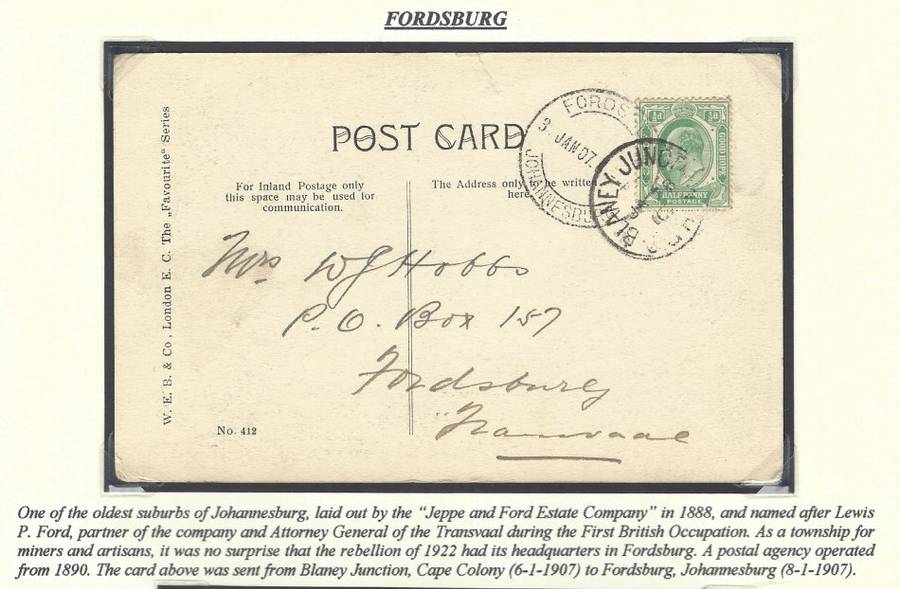 FORDSBURG
POST CARD
For Inland Postage only
this space may be used for
communication.
The Address only to be written
here.
W. E. B. & Co., London E. C. The „Favourite" Series
No. 412
FORDS
JAN 07
JOHANNESBU
BLANEY JUNC
½d ½d
GOOD HOPE
HALF PENNY
POSTAGE
Mrs W J Hobbs
P. O. Box 157
Fordsburg
Transvaal
One of the oldest suburbs of Johannesburg, laid out by the “Jeppe and Ford Estate Company” in 1888, and named after Lewis
P. Ford, partner of the company and Attorney General of the Transvaal during the First British Occupation. As a township for
miners and artisans, it was no surprise that the rebellion of 1922 had its headquarters in Fordsburg. A postal agency operated
from 1890. The card above was sent from Blaney Junction, Cape Colony (6-1-1907) to Fordsburg, Johannesburg (8-1-1907).